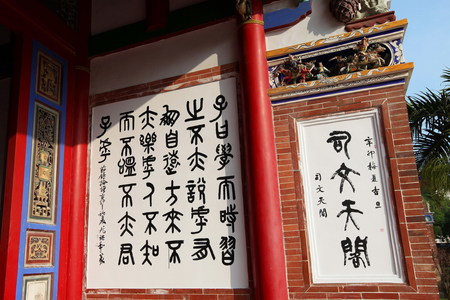 子曰學而時習
之不亦說乎有
朋自遠方來不
亦樂乎人不知
而不慍不亦君
子乎
辛卯
司文天閣
司文天閣